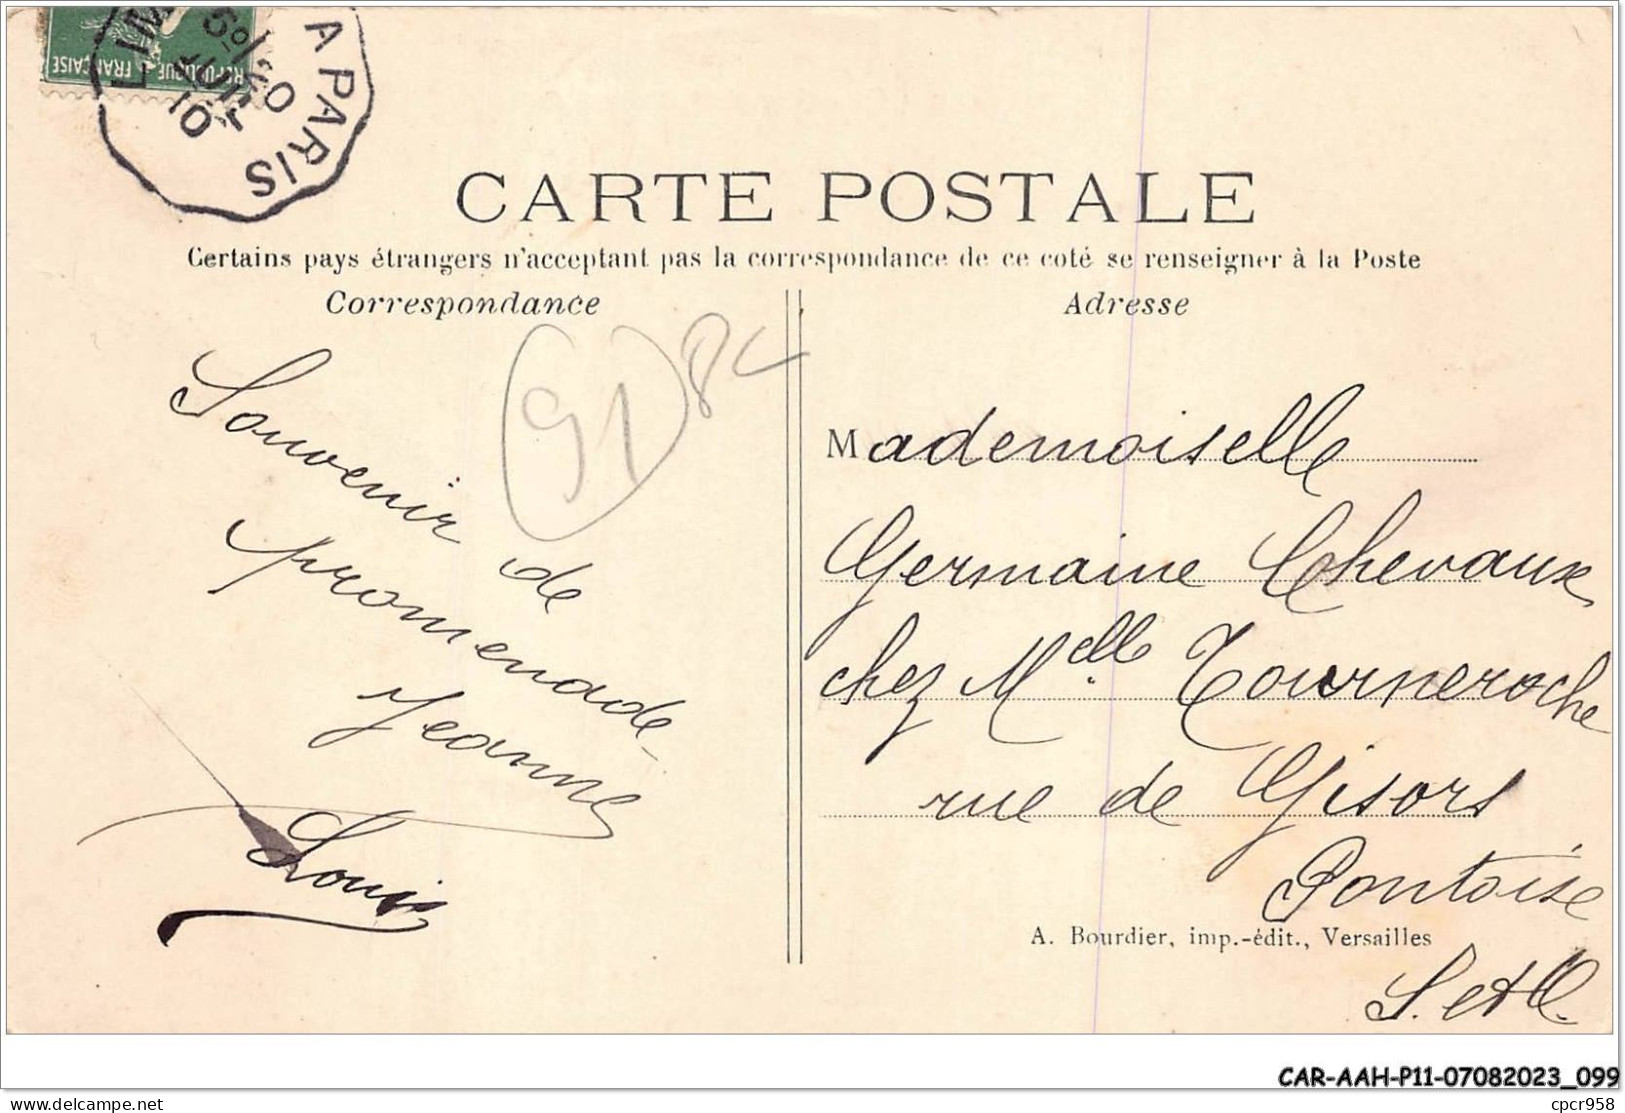 RÉPUBLIQUE FRANÇAISE
A PARIS
CARTE POSTALE
Certains pays étrangers n'acceptant pas la correspondance de ce coté se renseigner à la Poste
Correspondance
Adresse
91
Souvenir de
promenade
Jeanne
Louis
Mademoiselle
Germaine Chevaux
chez Melle Tourneroche
rue de Gisors
Pontoise
S. et O.
A. Bourdier, imp.-édit., Versailles
CAR-AAH-P11-07082023_099
delcampe.net
cpcr958